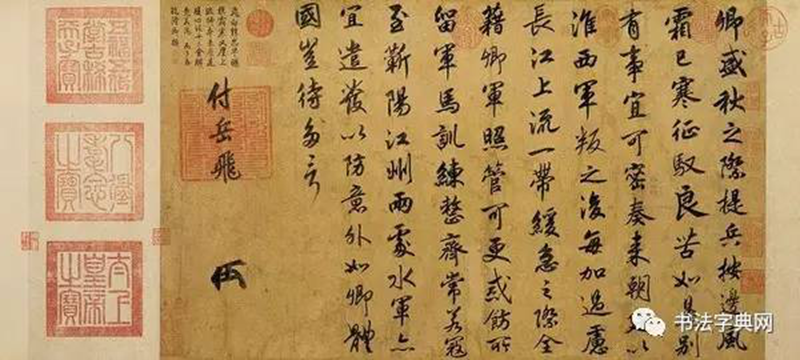 卿盛秋之際提兵按邊風
霜已寒征馭良苦如是別
有事宜可密奏來朝廷以
淮西軍叛之後每加過慮
長江上流一帶緩急之際全
藉卿軍照管可更戒飭所
留軍馬訓練整齊常若寇
至蘄陽江州兩處水軍亦
宜遣發以防意外如卿體
國豈待多言
付岳飛
五福五代堂古稀天子寶
八徵耄念之寶
太上皇帝之寶
书法字典网